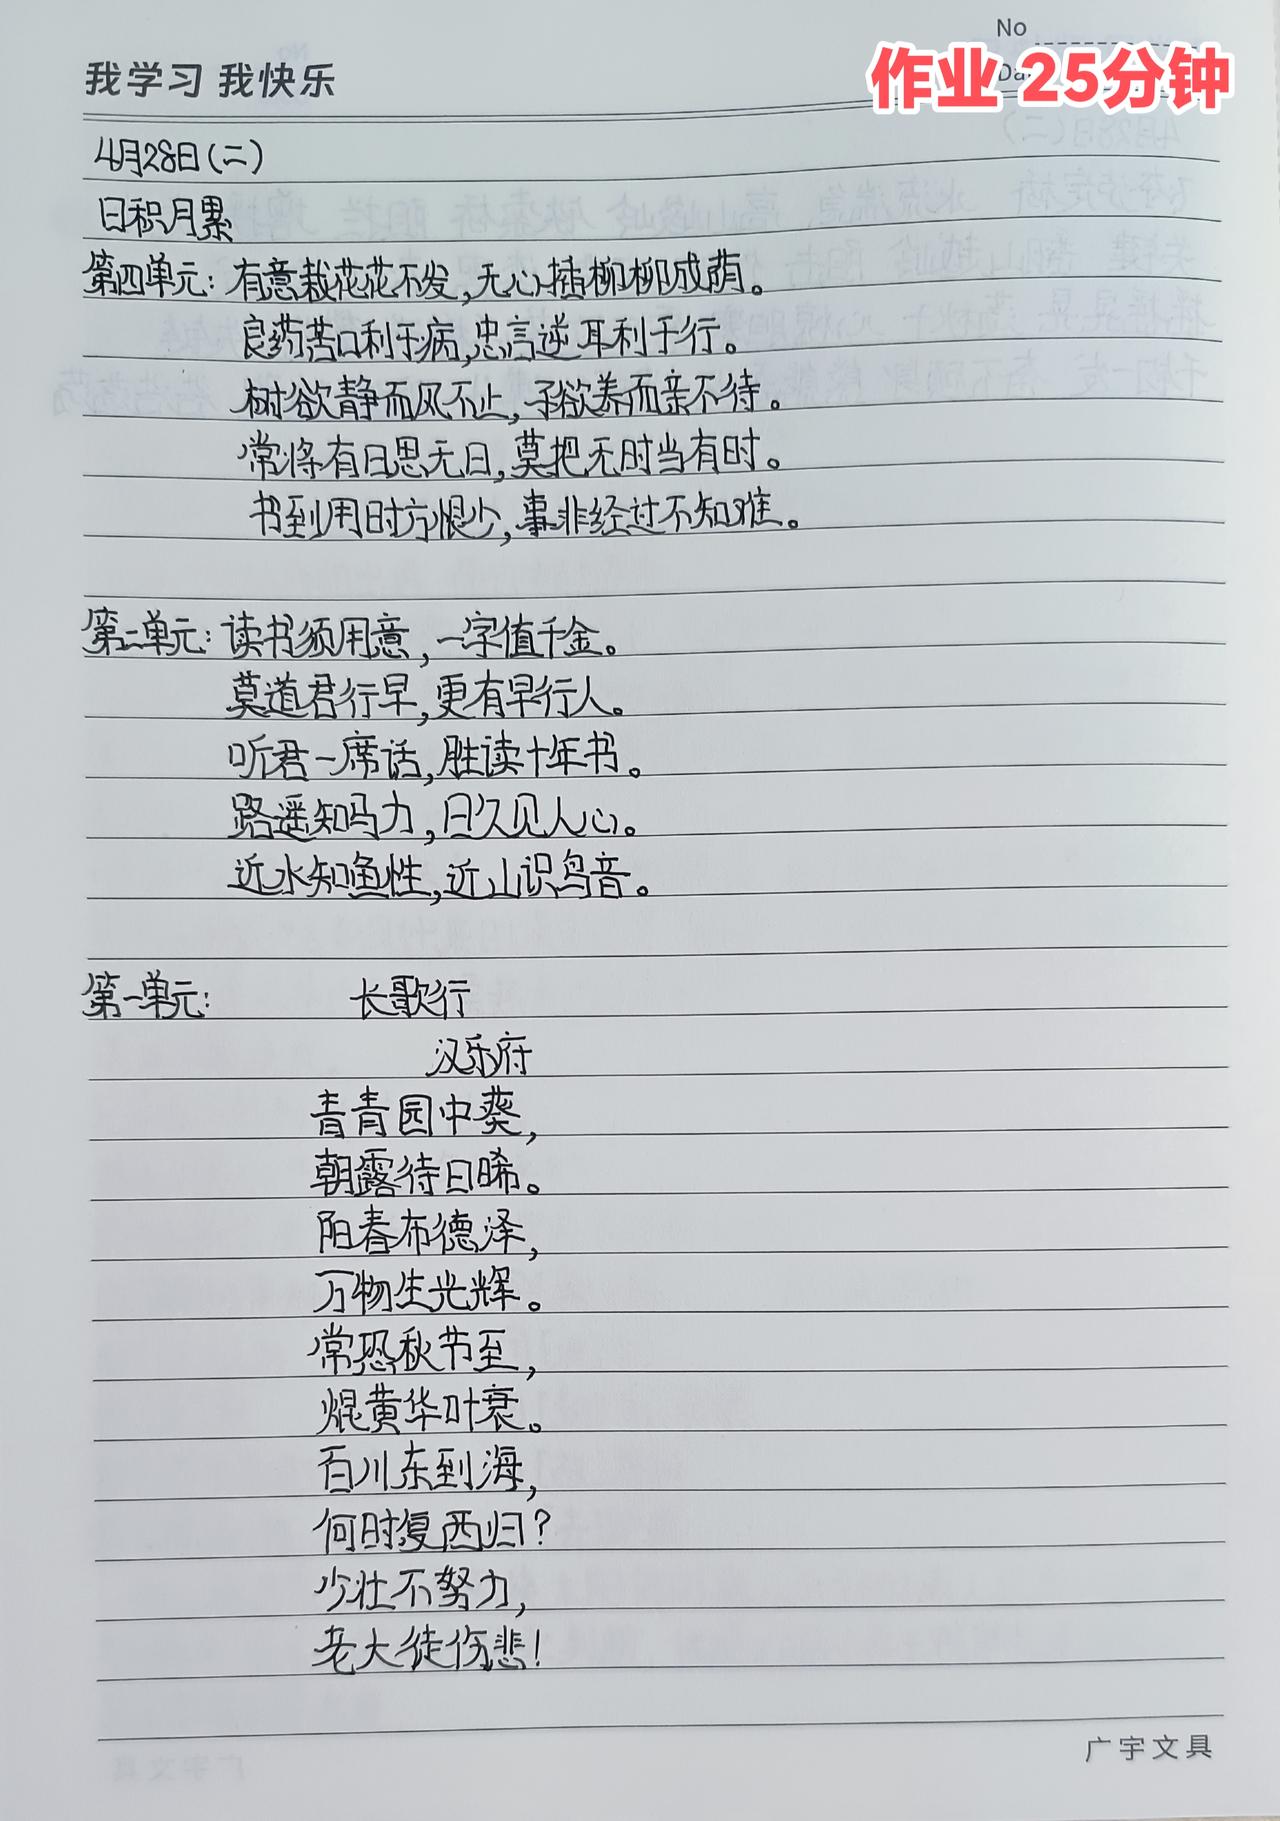 No
作业 25分钟
我学习 我快乐
4月28日(二)
日积月累
第四单元：有意栽花花不发，无心插柳柳成荫。
良药苦口利于病，忠言逆耳利于行。
树欲静而风不止，子欲养而亲不待。
常将有日思无日，莫把无时当有时。
书到用时方恨少，事非经过不知难。
第二单元：读书须用意，一字值千金。
莫道君行早，更有早行人。
听君一席话，胜读十年书。
路遥知马力，日久见人心。
近水知鱼性，近山识鸟音。
第一单元： 长歌行
汉乐府
青青园中葵，
朝露待日晞。
阳春布德泽，
万物生光辉。
常恐秋节至，
焜黄华叶衰。
百川东到海，
何时复西归？
少壮不努力，
老大徒伤悲！
广宇文具